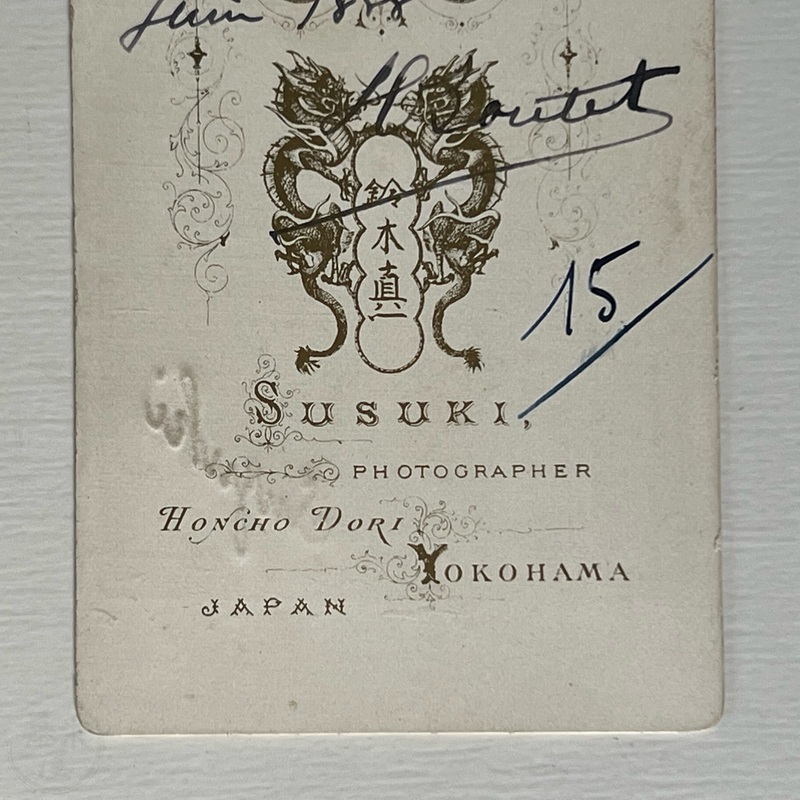 Juin 1888
H Boutet
鈴木真一
15
SUSUKI,
PHOTOGRAPHER
HONCHO DORI
YOKOHAMA
JAPAN